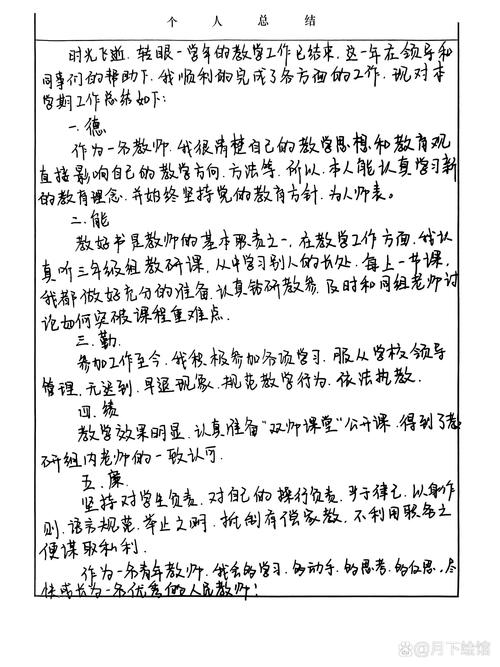 个人总结
时光飞逝.转眼一学年的教学工作已结束.这一年在领导和
同事们的帮助下.我顺利的完成了各方面的工作.现对本
学期工作总结如下:
一.德
作为一名教师.我很清楚自己的教学思想和教育观
直接影响自己的教学方向.方法等.所以.本人能认真学习新
的教育理念.并始终坚持党的教育方针.为人师表。
二.能
教好书是教师的基本职责之一.在教学工作方面.我认
真听三年级组教研课.从中学习别人的长处.每上一节课,
我都做好充分的准备.认真钻研教参.及时和同组老师讨
论如何突破课程重难点.
三.勤.
参加工作至今.我积极参加各项学习.服从学校领导
管理.无迟到.早退现象.规范教学行为.依法执教.
四.绩
教学效果明显.认真准备"双师课堂"公开课.得到了教
研组内老师的一致认可.
五.廉
坚持对学生负责.对自己的操行负责.严于律己.以身作
则.语言规范.举止文明.抵制有偿家教.不利用职务之
便谋取私利.
作为一名青年教师.我会多学习.多动手.多思考.多反思.尽
快成长为一名优秀的人民教师!
@月下绘馆